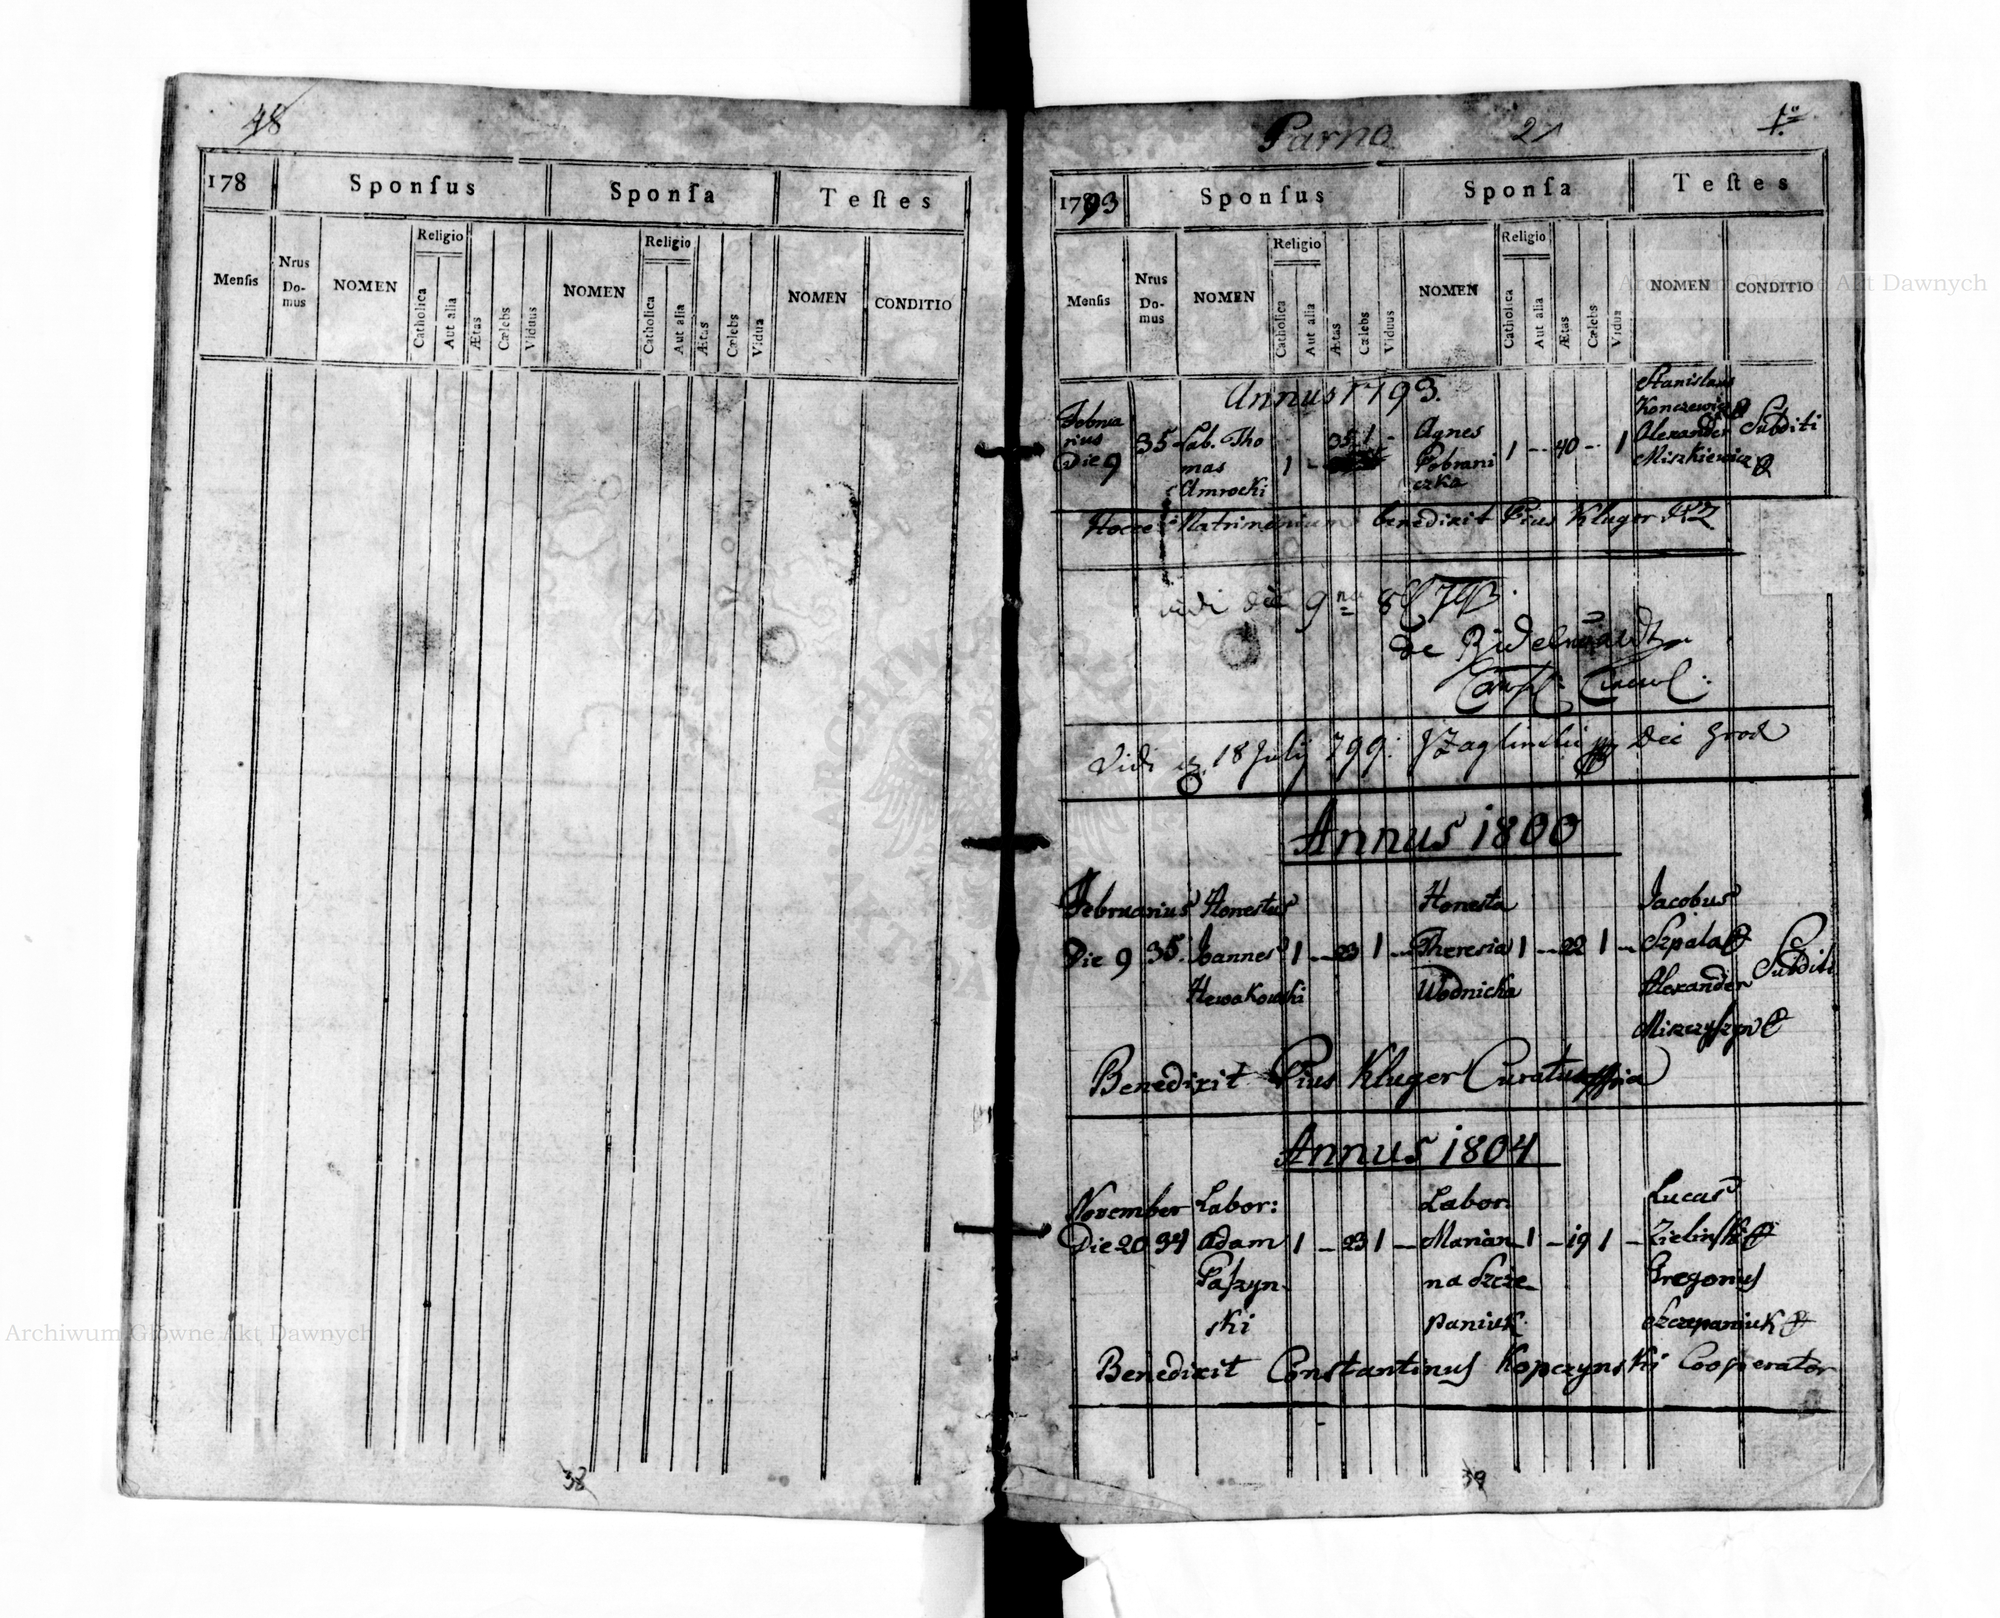 48
178
Sponſus
Sponſa
Teſtes
Menſis
Nrus Do-mus
NOMEN
Religio
Catholica
Aut alia
Ætas
Cælebs
Viduus
NOMEN
Religio
Catholica
Aut alia
Ætas
Cælebs
Vidua
NOMEN
CONDITIO
38
Parno
21
1793
Sponſus
Sponſa
Teſtes
Menſis
Nrus Do-mus
NOMEN
Religio
Catholica
Aut alia
Ætas
Cælebs
Viduus
NOMEN
Religio
Catholica
Aut alia
Ætas
Cælebs
Vidua
NOMEN
CONDITIO
Annus 1793.
Februa
rius
Die 9
35
Lab. Tho
mas
Amrocki
1 - 35 1 -
Agnes
Pobrani
czka
1 - 40 - 1
Stanislaus
Konczewicz
Alexander
Miszkiewicz
Subditi
Hocce Matrimonium benedixit Pius Kluger
vidi die 9na
Vidi 18 July 799.
Annus 1800
Februarius Honestus Honesta Jacobus
Die 9 35. Joannes 1 - 23 1 - Theresia 1 - 22 1 - Szpala Subditi
Newakowski Wodnicka Alexander
Miszczyszyn
Benedixit Pius Kluger Curatus
Annus 1804
November Labor: Labor. Lucas
Die 20 34 Adam 1 - 23 1 - Marian 1 - 19 1 - Zielinſki
Paſzyn- na Szcze Gregorius
ski paniuk. Szczepaniuk
Benedixit Constantinus Kopczynski Cooperator
39
Archiwum Główne Akt Dawnych
Archiwum Główne Akt Dawnych